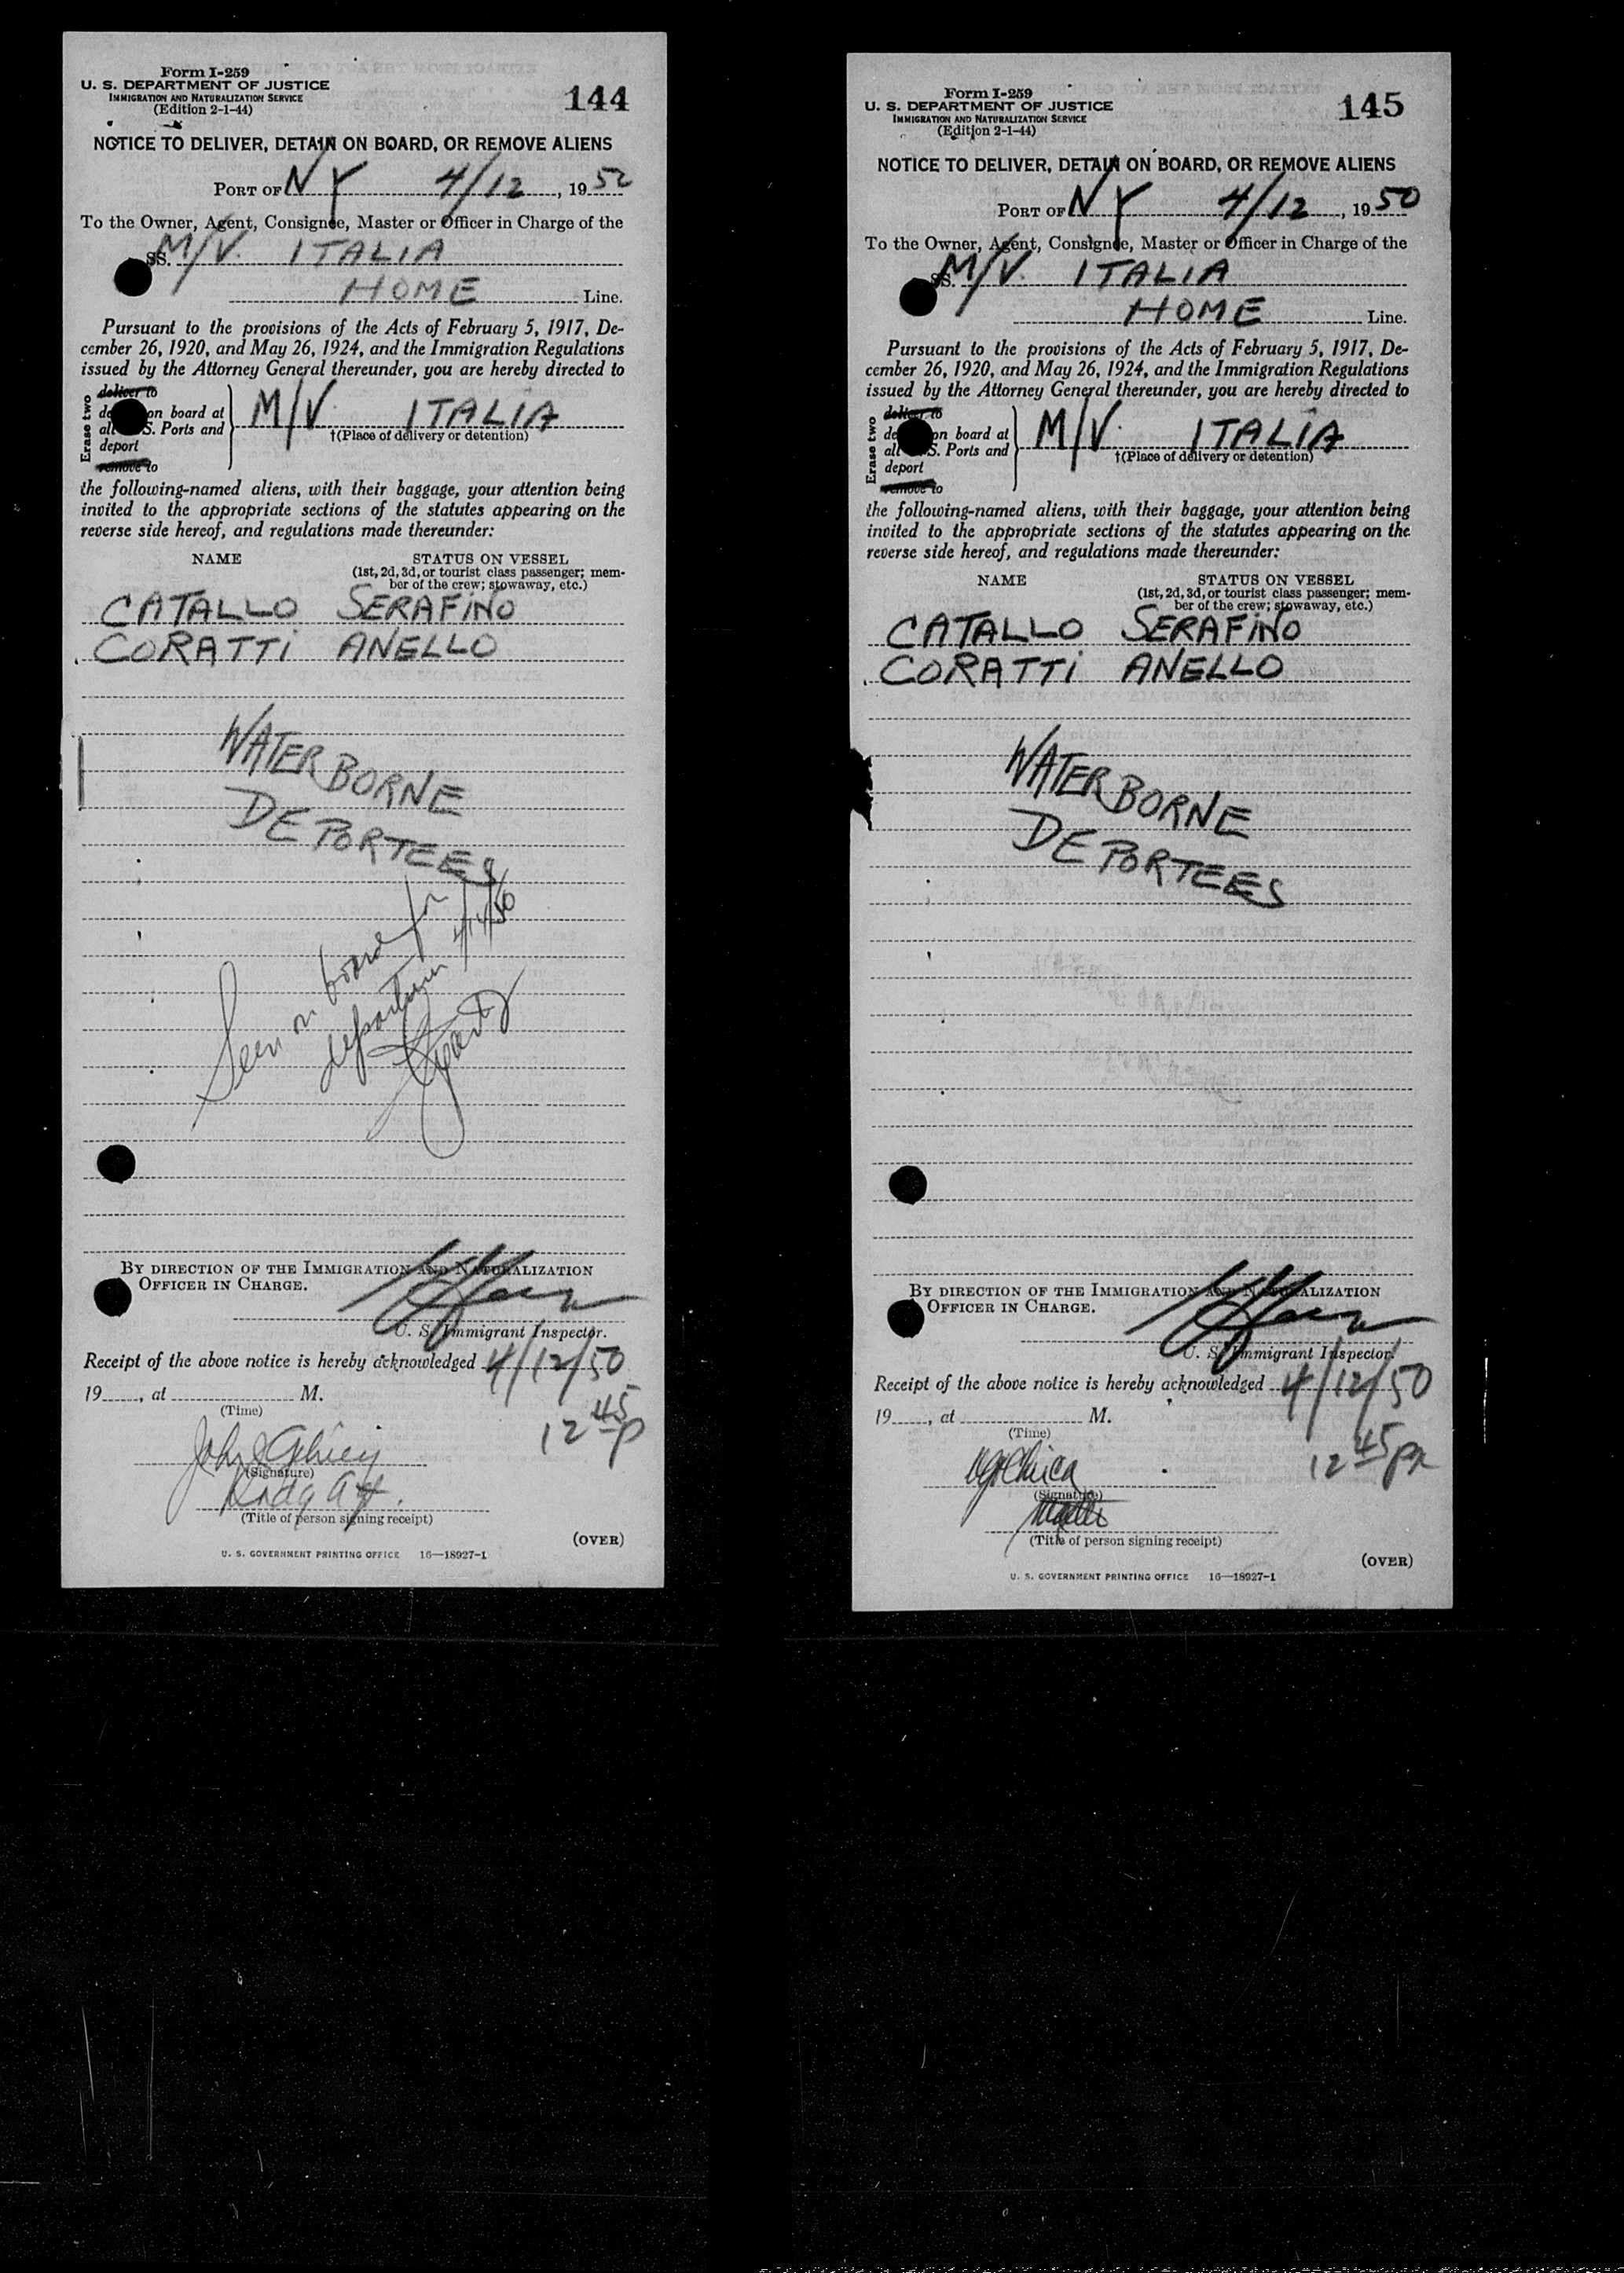 Form I-259
U. S. DEPARTMENT OF JUSTICE
IMMIGRATION AND NATURALIZATION SERVICE
(Edition 2-1-44)
144
NOTICE TO DELIVER, DETAIN ON BOARD, OR REMOVE ALIENS
PORT OF NY 4/12, 1950
To the Owner, Agent, Consignee, Master or Officer in Charge of the
SS. M/V. ITALIA
HOME Line.
Pursuant to the provisions of the Acts of February 5, 1917, De-
cember 26, 1920, and May 26, 1924, and the Immigration Regulations
issued by the Attorney General thereunder, you are hereby directed to
Erase two
deliver to
on board at
S. Ports and
deport
remove to
M/V. ITALIA
†(Place of delivery or detention)
the following-named aliens, with their baggage, your attention being
invited to the appropriate sections of the statutes appearing on the
reverse side hereof, and regulations made thereunder:
NAME STATUS ON VESSEL
(1st, 2d, 3d, or tourist class passenger; mem-
ber of the crew; stowaway, etc.)
CATALLO SERAFINO
CORATTI ANELLO
WATERBORNE
DEPORTEES
Seen on board for
departure 4/14/50
BY DIRECTION OF THE IMMIGRATION AND NATURALIZATION
OFFICER IN CHARGE.
U. S. Immigrant Inspector.
Receipt of the above notice is hereby acknowledged 4/12/50
19, at M.
(Time)
12 45 p
John
(Signature)
(Title of person signing receipt)
(OVER)
U. S. GOVERNMENT PRINTING OFFICE 16—18927-1
Form I-259
U. S. DEPARTMENT OF JUSTICE
IMMIGRATION AND NATURALIZATION SERVICE
(Edition 2-1-44)
145
NOTICE TO DELIVER, DETAIN ON BOARD, OR REMOVE ALIENS
PORT OF NY 4/12, 1950
To the Owner, Agent, Consignee, Master or Officer in Charge of the
SS. M/V. ITALIA
HOME Line.
Pursuant to the provisions of the Acts of February 5, 1917, De-
cember 26, 1920, and May 26, 1924, and the Immigration Regulations
issued by the Attorney General thereunder, you are hereby directed to
Erase two
deliver to
on board at
S. Ports and
deport
remove to
M/V. ITALIA
†(Place of delivery or detention)
the following-named aliens, with their baggage, your attention being
invited to the appropriate sections of the statutes appearing on the
reverse side hereof, and regulations made thereunder:
NAME STATUS ON VESSEL
(1st, 2d, 3d, or tourist class passenger; mem-
ber of the crew; stowaway, etc.)
CATALLO SERAFINO
CORATTI ANELLO
WATERBORNE
DEPORTEES
BY DIRECTION OF THE IMMIGRATION AND NATURALIZATION
OFFICER IN CHARGE.
U. S. Immigrant Inspector.
Receipt of the above notice is hereby acknowledged 4/12/50
19, at M.
(Time)
12 45 pm
(Signature)
(Title of person signing receipt)
(OVER)
U. S. GOVERNMENT PRINTING OFFICE 16—18927-1